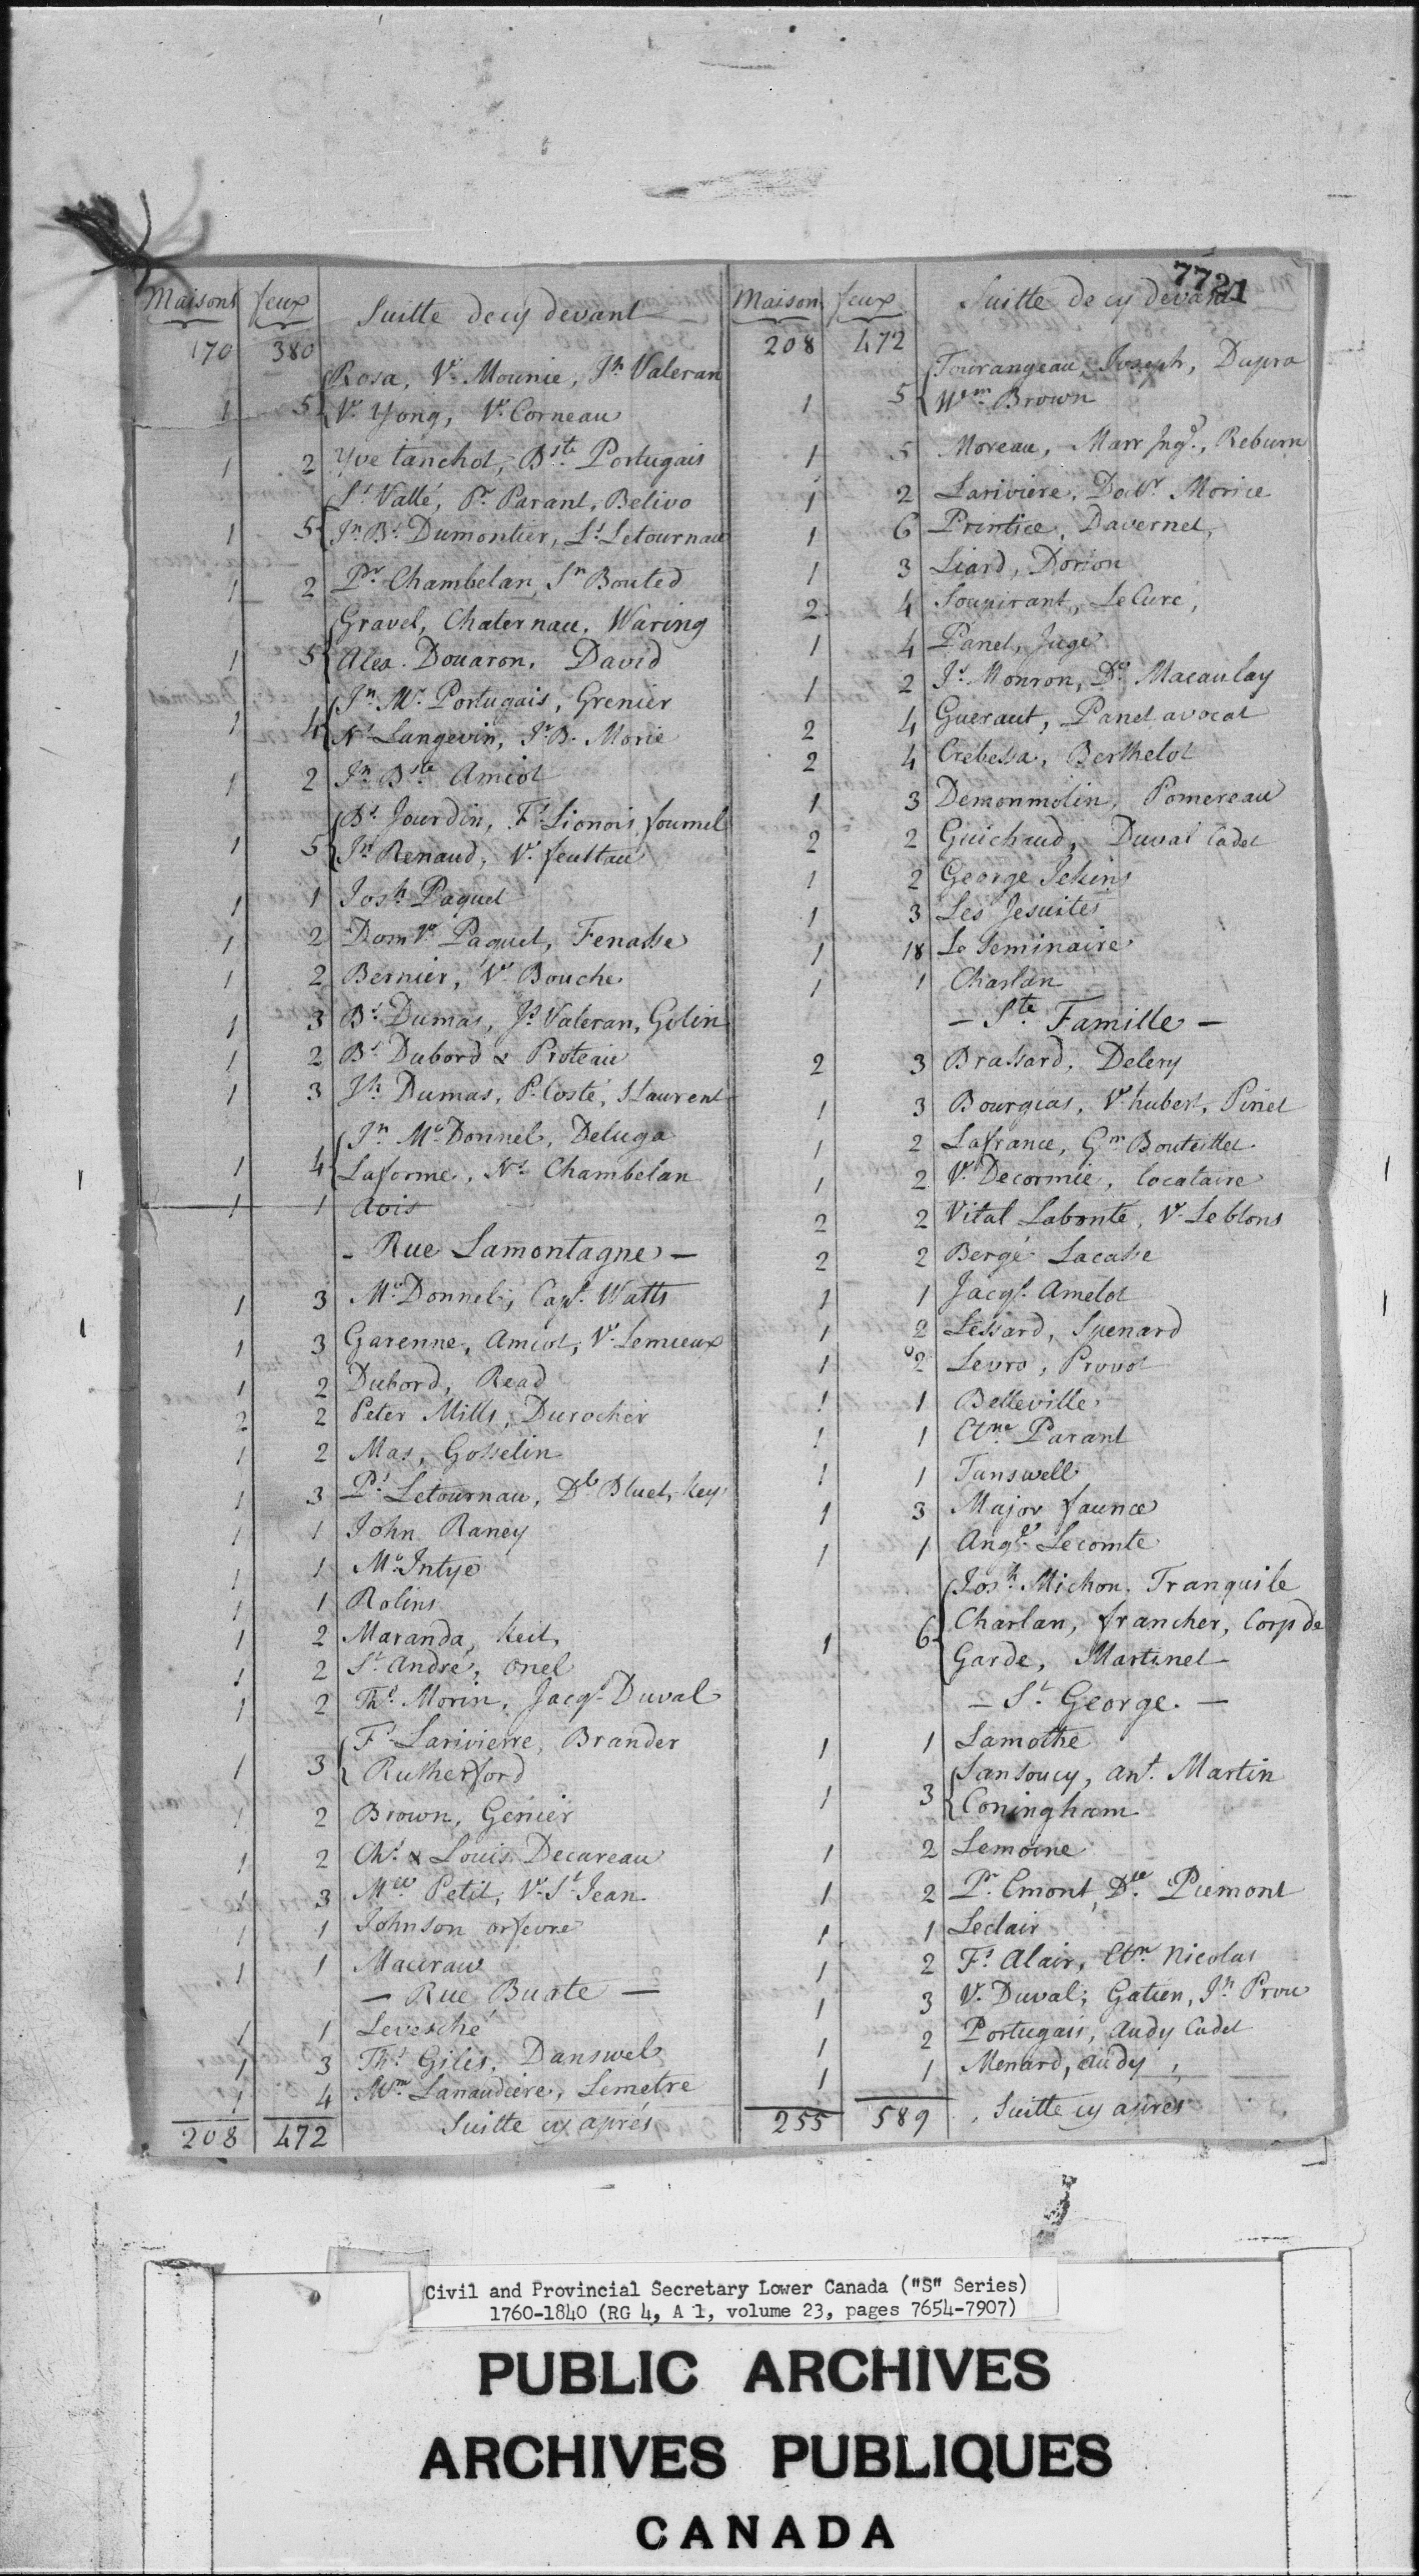 7721
Maisons feux Suitte de cy devant
170 380
Rosa, Ve. Mounie, Jh Valeran
1 5 Ve. Yong, Ve. Corneau
1 2 Yve tanchot, Bste. Portugais
Ls Vallé, Pr. Parant, Belivo
1 5 Jn Bt. Dumontier, Ls. Letournau
1 2 Pr. Chambelan, Jn Bouted
Gravel, Chaternau, Waring
1 5 Alex. Douaron, David
Jn Mc. Portugais, Grenier
1 4 Ns Langevin, Jn B. Morie
1 2 Jn Bste Amiot
Bt. Jourdin, Fs. Lionois, fournel
1 5 Jn Renaud, Ve. feultau
1 1 Josh. Paquet
1 2 Domqe. Paquet, Fenasse
1 2 Bernier, Ve. Bouche
1 3 Bt. Dumas, Js. Valeran, Golin
1 2 Bt. Dubord & Proteau
1 3 Jh Dumas, P. Costé, St Laurent
Jn Mc Donnel, Deluga
1 4 Laforme, Ns. Chambelan
1 1 Avis
- Rue Lamontagne -
1 3 Mc Donnel, Capt. Watts
1 3 Garenne, Amiot, Ve. Lemieux
1 2 Dubord, Read
2 2 Peter Mills, Durocher
1 2 Mas, Gosselin
1 3 Ps. Letournau, Dlle Bluet, Key
1 1 John Raney
1 1 Mc. Intye
1 1 Rolins
1 2 Maranda, Keit,
1 2 St. André, Onel
1 2 Ths. Morin, Jacqs. Duval
Fs. Larivierre, Brander
1 3 Rutherford
1 2 Brown, Genier
1 2 Chs. & Louis Decareau
1 3 Mel Petit, Ve. St. Jean
1 1 Johnson orfevre
1 1 Macerau
- Rue Buate -
1 1 Levesché
1 3 Ths. Giles, Danswel
1 4 Mme Lanaudiere, Lemetre
208 472 Suitte cy aprés
Maison feux Suitte de cy devant
208 472
Tourangeau, Joseph, Dupra
1 5 Wm. Brown
1 5 Moreau, Marr Ingr., Reburn
1 2 Lariviere, Doctr. Morice
1 6 Printice, Davernet,
1 3 Liard, Dorion
2 4 Soupirant, Le Curé,
1 4 Panet, Juge
1 2 Js. Monron, Dr. Macaulay
2 4 Gueraut, Panet avocat
2 4 Crebessa, Berthelot
1 3 Demonmolin, Pomereau
2 2 Guichaud, Duval Cadet
1 2 George Jekins
1 3 Les Jesuites
1 18 Le Seminaire
1 1 Charlan
- Ste Famille -
2 3 Brassard, Delery
1 3 Bourgias, Ve hubert, Pinet
1 2 Lafrance, Gm Bouteiller
1 2 Ve. Decormié, locataire
2 2 Vital Labonte, Ve. Leblons
2 2 Bergé Lacasse
1 1 Jacqs. Amelot
1 2 Lessard, Spenard
1 2 Levro, Provot
1 1 Belleville
1 1 Etne Parant
1 1 Tanswell
1 3 Major faunce
1 1 Angle. Lecomte
Josh. Michon. Tranquile
1 6 Charlan, francher, Corp de
Garde, Martinet
- St. George. -
1 1 Lamothe
Sansoucy, ant. Martin
1 3 Coningham
1 2 Lemoine
1 2 Pr. Emont, Dlle. Piemont
1 1 Leclair
1 2 Fs. Alair, Etne Nicolas
1 3 Ve. Duval, Gatien, Jn. Prou
1 2 Portugais, Audy Cadet
1 1 Menard, Audy,
255 589 Suitte cy aprés
Civil and Provincial Secretary Lower Canada ("S" Series)
1760-1840 (RG 4, A 1, volume 23, pages 7654-7907)
PUBLIC ARCHIVES
ARCHIVES PUBLIQUES
CANADA